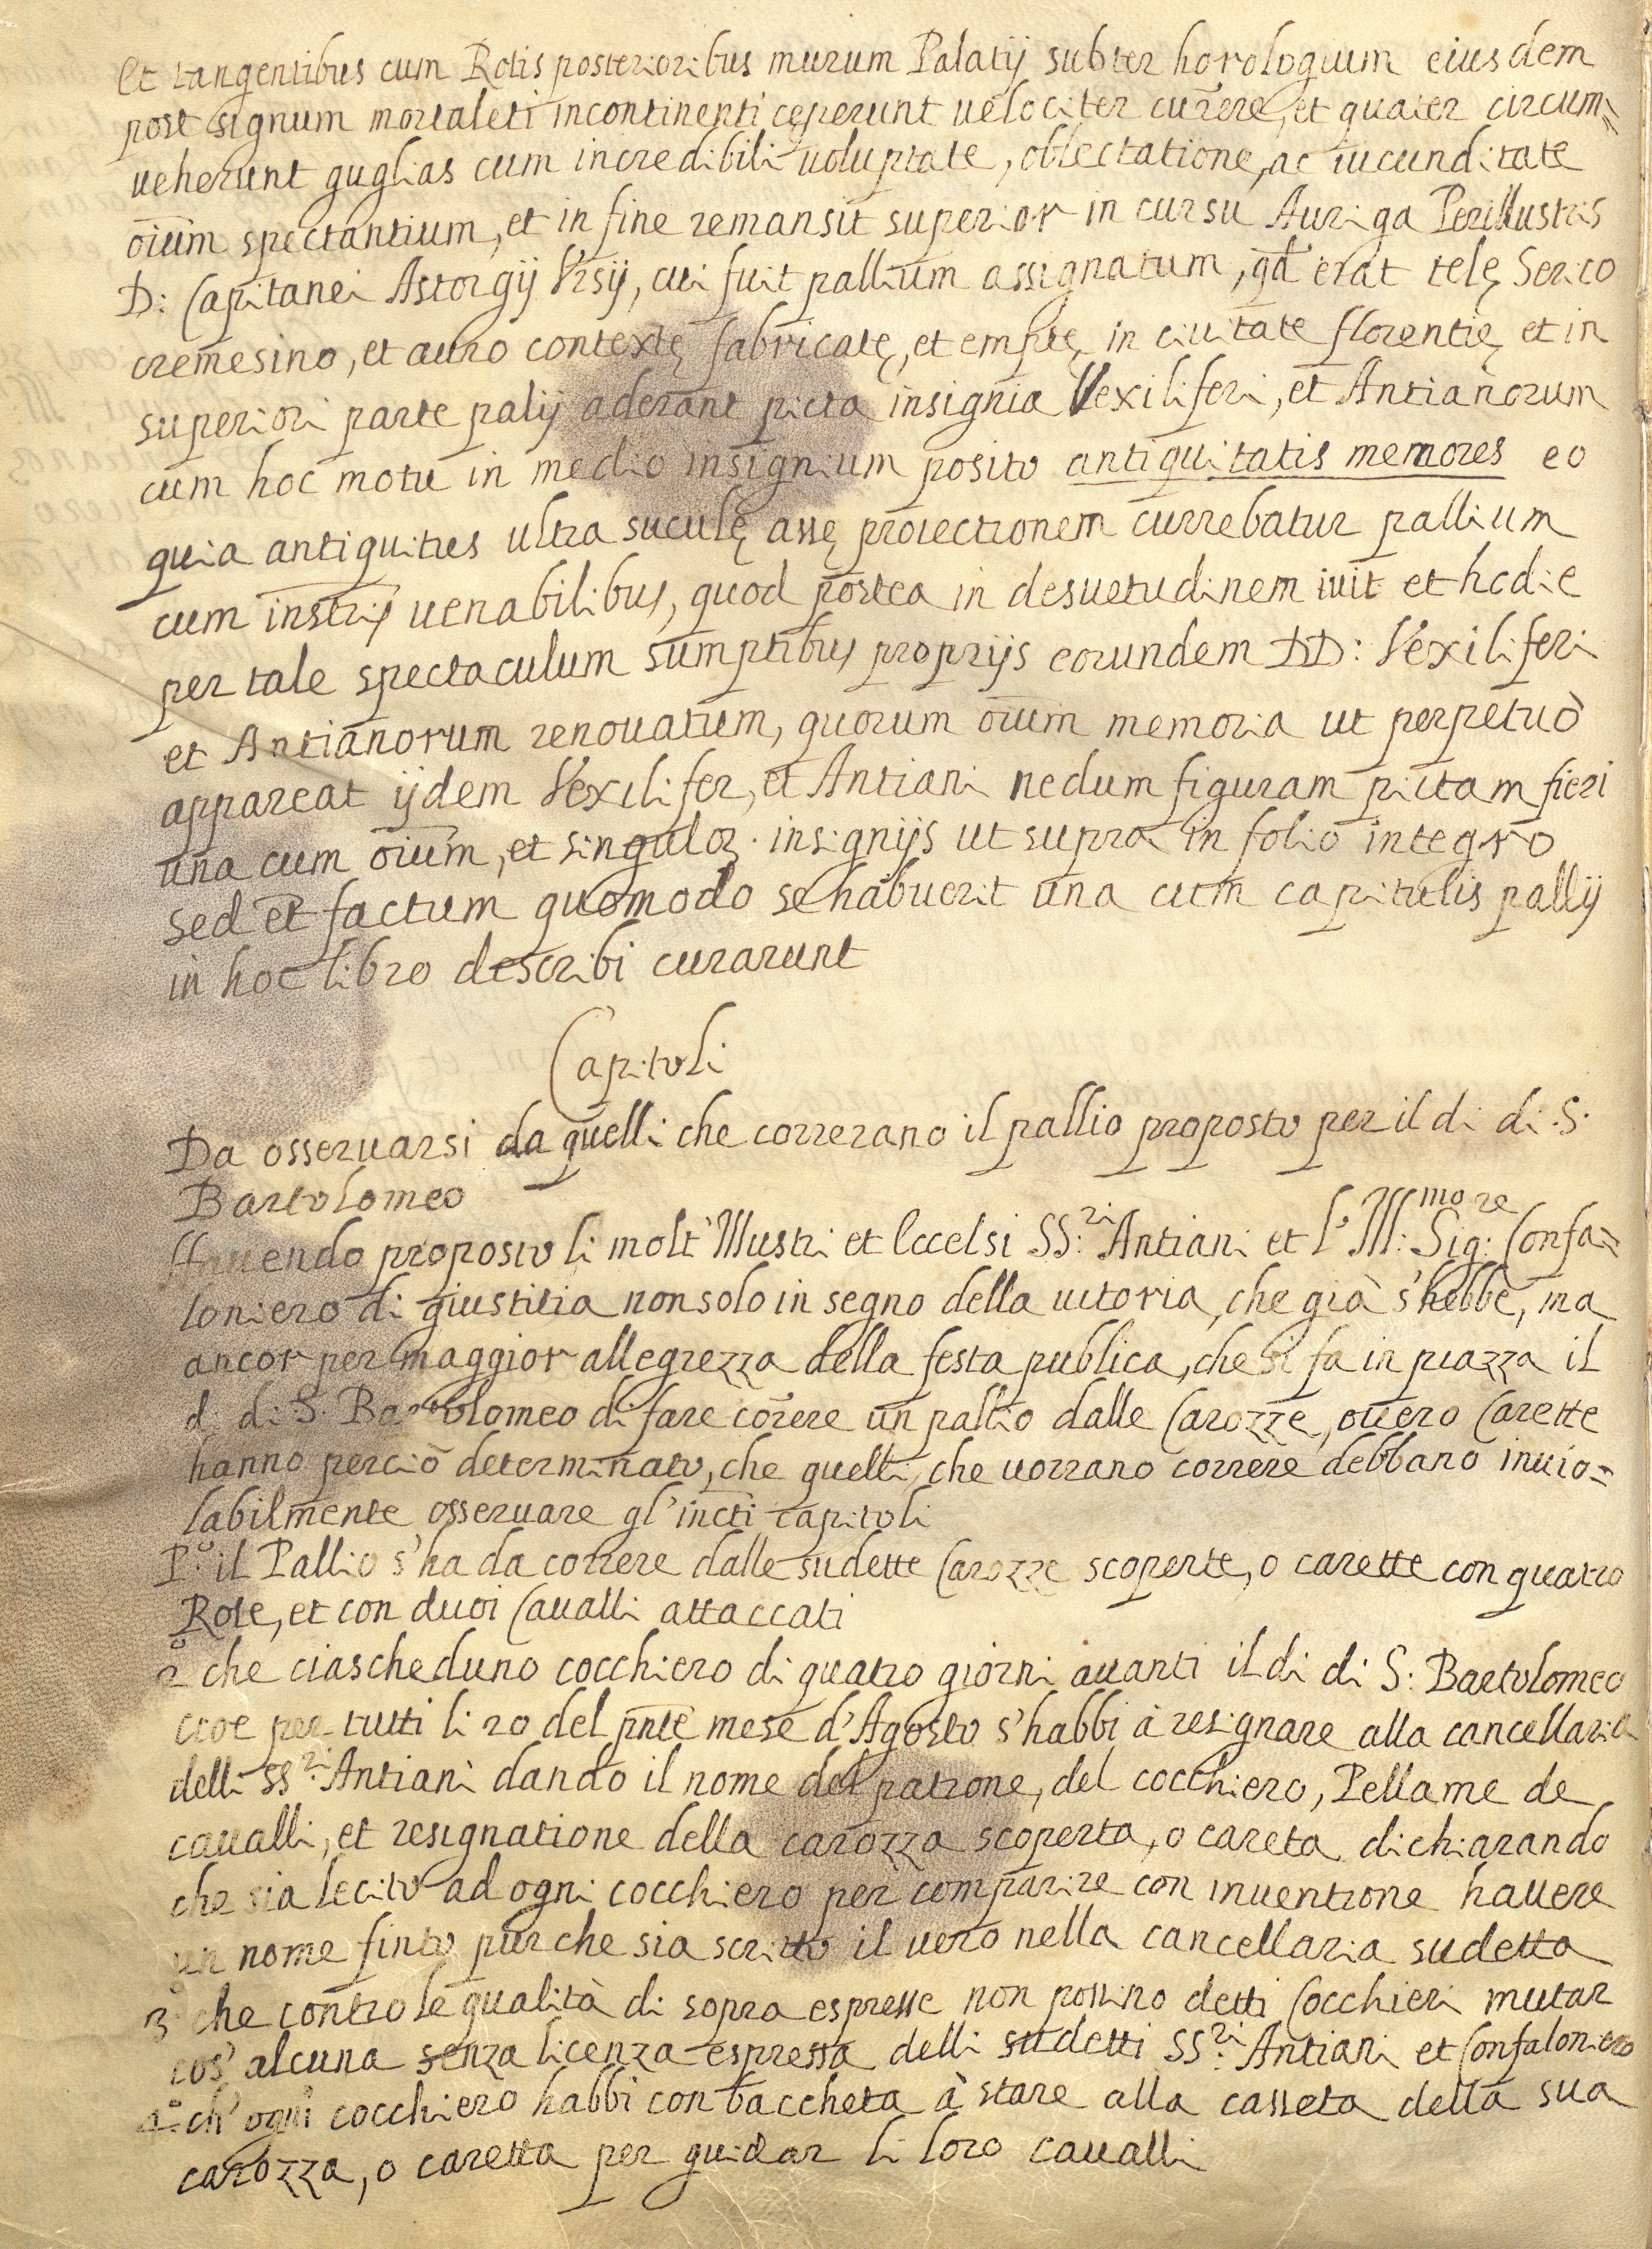 et tangentibus cum Rotis posterioribus murum Palatij subter horologium eiusdem
post signum mortaleti incontinenti ceperunt uelociter currere, et quater circum=
ueherunt guglias cum incredibili uoluptate, oblectatione, ac iucunditate
oium spectantium, et in fine remansit superior in cursu Auriga Perillustris
D: Capitanei Astorgij Vrsij, cui fuit pallium assignatum, qd erat telę Serico
cremesino, et auro contextę fabricatę, et emptę in ciuitate florentię et in
superiori parte palij aderant picta insignia Vexiliferi, et Antianorum
cum hoc motu in medio insignium posito antiquitatis memores eo
quia antiquities ultra suculę assę proiectionem currebatur pallium
cum instrij uenabilibus, quod postea in desuetudinem iuit et hodie
per tale spectaculum sumptibus proprijs eorundem DD: Vexiliferi
et Antianorum renouatum, quorum oium memoria ut perpetuò
appareat ijdem Vexilifer, et Antiani nedum figuram pictam fieri
una cum oium, et singuloꝝ insignijs ut supra in folio integro
sed et factum quomodo se habuerit una cum capitulis pallij
in hoc libro describi curarunt
Capitoli
Da osseruarsi da quelli che correrano il pallio proposto per il di di S.
Bartolomeo
Hauendo proposto li molt' Illustri et Eccelsi SS:ri Antiani et l' Ill:mo Sig:re Confa=
loniero di giustitia non solo in segno della uitoria, che già s'hebbe, ma
ancor per maggior allegrezza della festa publica, che si fa in piazza il
di di S. Bartolomeo di fare correre un pallio dalle Carozze, ouero Carette
hanno perciò determinato, che quelli, che uorrano correre debbano inuio=
labilmente osseruare gl'incti capitoli
P:o il Pallio s'ha da correre dalle sudette Carozze scoperte, o carette con quatro
Rote, et con duoi Caualli attaccati
2:o che ciascheduno cocchiero di quatro giorni auanti il di di S: Bartolomeo
cioe per tutti li 20 del pnte mese d'Agosto s'habbi à resignare alla cancellaria
delli SS:ri Antiani dando il nome del patrone, del cocchiero, Pellame de
caualli, et resignatione della carozza scoperta, o careta dichiarando
che sia lecito ad ogni cocchiero per comparire con inuentione hauere
un nome finto pur che sia scritto il uero nella cancellaria sudetta
3:o che contro le qualità di sopra espresse non possino detti Cocchieri mutar
cos' alcuna senza licenza espressa delli sudetti SS:ri Antiani et Confaloniero
4:o ch' ogni cocchiero habbi con baccheta à stare alla casseta della sua
carozza, o caretta per guidar li loro caualli